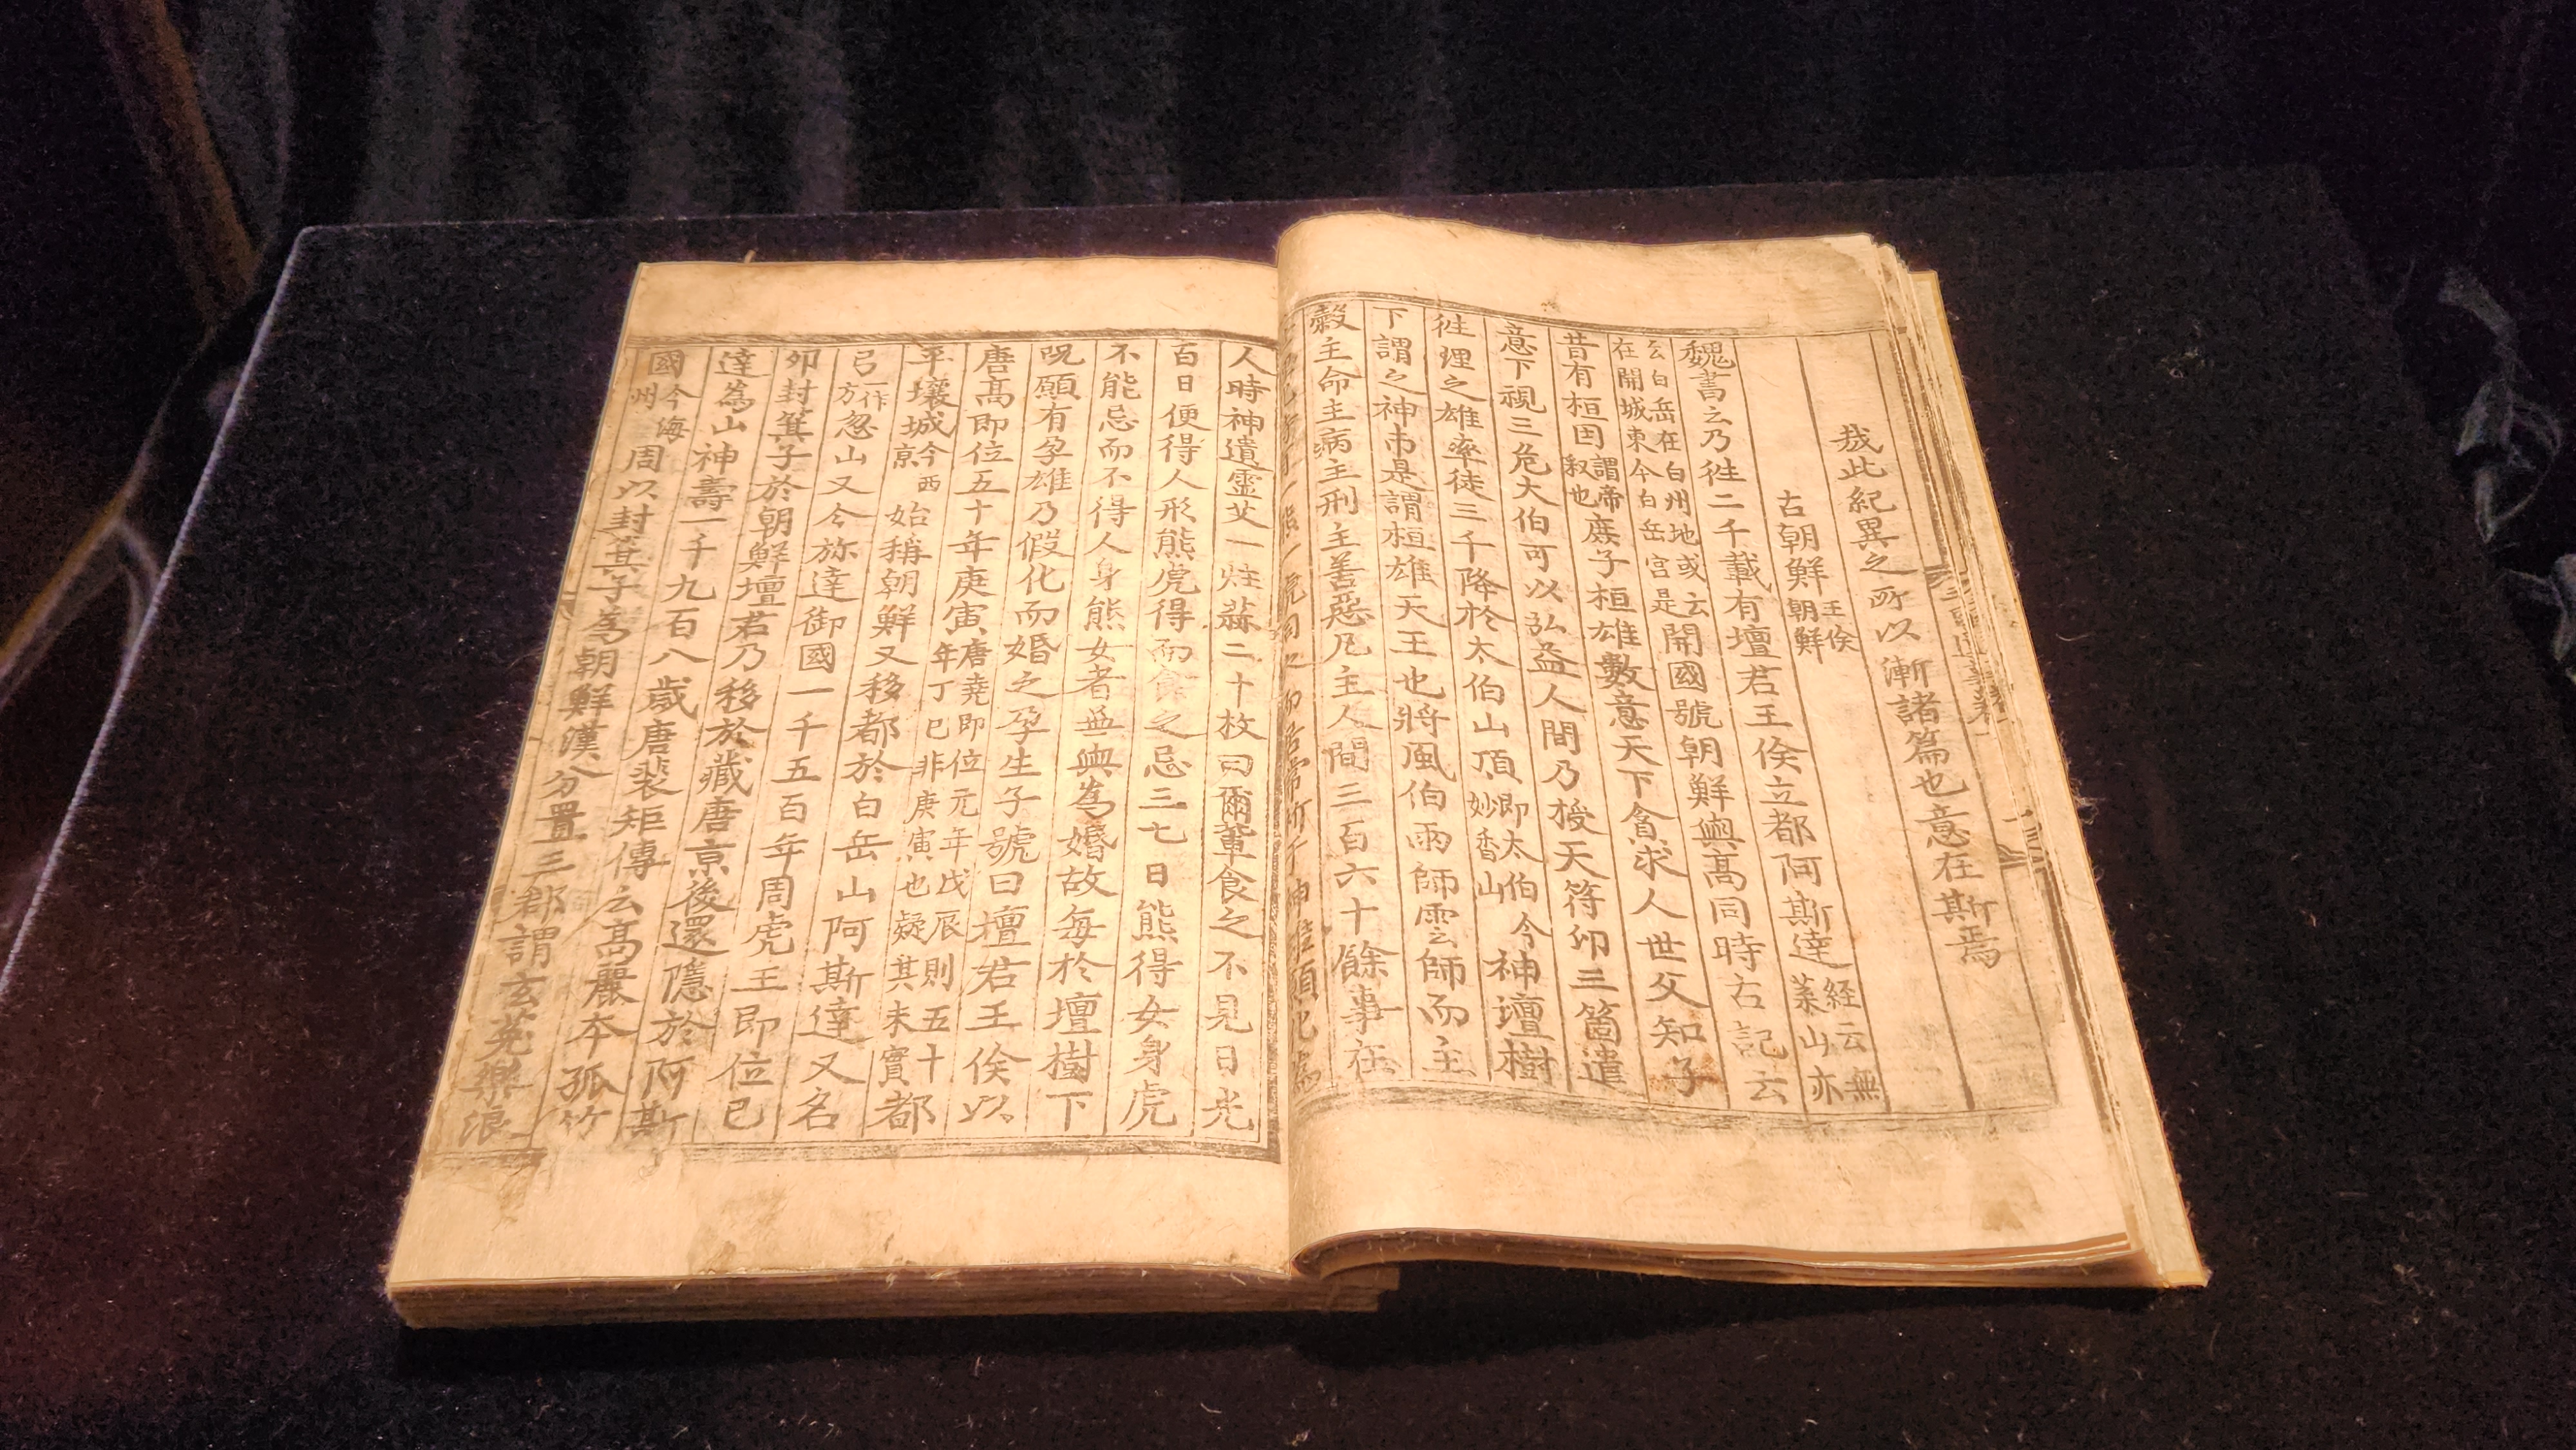 㦲此紀異之所以漸諸篇也意在斯焉
古朝鮮王倹朝鮮
魏書云乃徃二千載有壇君王倹立都阿斯達經云無葉山亦
云白岳在白州地或云在開城東今白岳宮是開國號朝鮮與髙同時古記云
昔有桓因謂帝釋也庶子桓雄數意天下貪求人世父知子
意下視三危大伯可以弘益人間乃授天符印三箇遣
徃理之雄率徒三千降於太伯山頂即太伯今妙香山神壇樹
下謂之神市是謂桓雄天王也將風伯雨師雲師而主
糓主命主病主刑主善惡凡主人間三百六十餘事在
一熊一虎同穴而居常祈于神雄願化爲
人時神遺靈艾一炷蒜二十枚曰爾軰食之不見日光
百日便得人形熊虎得而食之忌三七日熊得女身虎
不能忌而不得人身熊女者無與為婚故每於壇樹下
呪願有孕雄乃假化而婚之孕生子號曰壇君王倹以
唐髙即位五十年庚寅唐堯即位元年戊辰則五十年丁巳非庚寅也疑其未實都
平壤城今西亰始稱朝鮮又移都於白岳山阿斯達又名
弓一作方忽山又今旀達御國一千五百年周虎王即位己
卯封箕子於朝鮮壇君乃移於藏唐京後還隱於阿斯
達為山神壽一千九百八歲唐裴矩傳云髙麗本孤竹
國今海州周以封箕子為朝鮮漢分置三郡謂玄菟樂浪